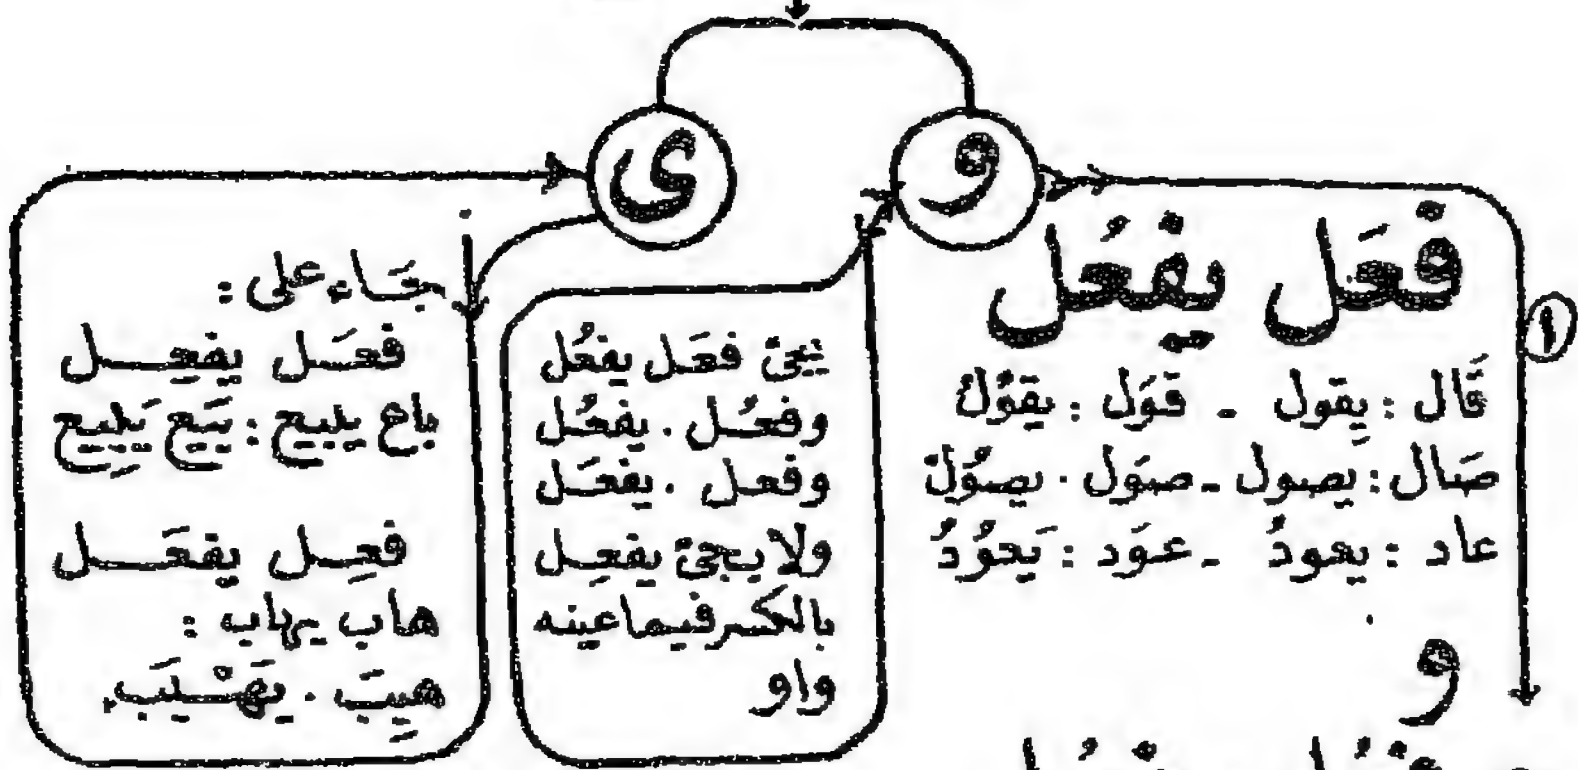 و
ى
①
فَعَل يفعُل
قَال : يقول - قوَل : يقوُل
صَال : يصول - صوَل . يصوُل
عاد : يعودُ - عوَد : يَعوُدُ
و
يجئ فعَل يفعُل
وفعُل . يفعُل
وفعل . يفعَل
ولا يجئ يفعِل
بالكسر فيما عينه
واو
جَاء على :
فعَل يفعِل
باع يبيع : بَيَع يَبيِع
فعِل يفعَل
هاب يهاب :
هيِبَ . يَهْيَب